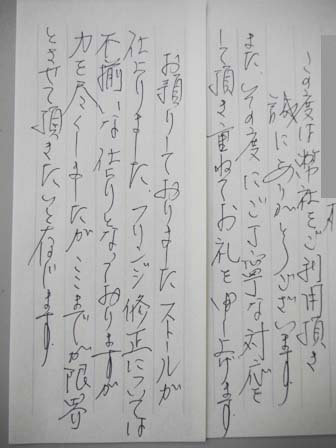 この度は弊社をご利用頂き
誠にありがとうございます
また、その度にご丁寧な対応を
して頂き重ねてお礼を申し上げます
お預りしておりましたストールが
仕上りました、フリンジ修正については
不揃いな仕上りとなっておりますが
力を尽くしましたがここまでが限界
とさせて頂きたいと存じます